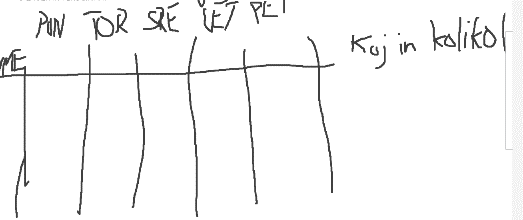 PON TOR SRE ČET PET
ME
Kaj in kolikol